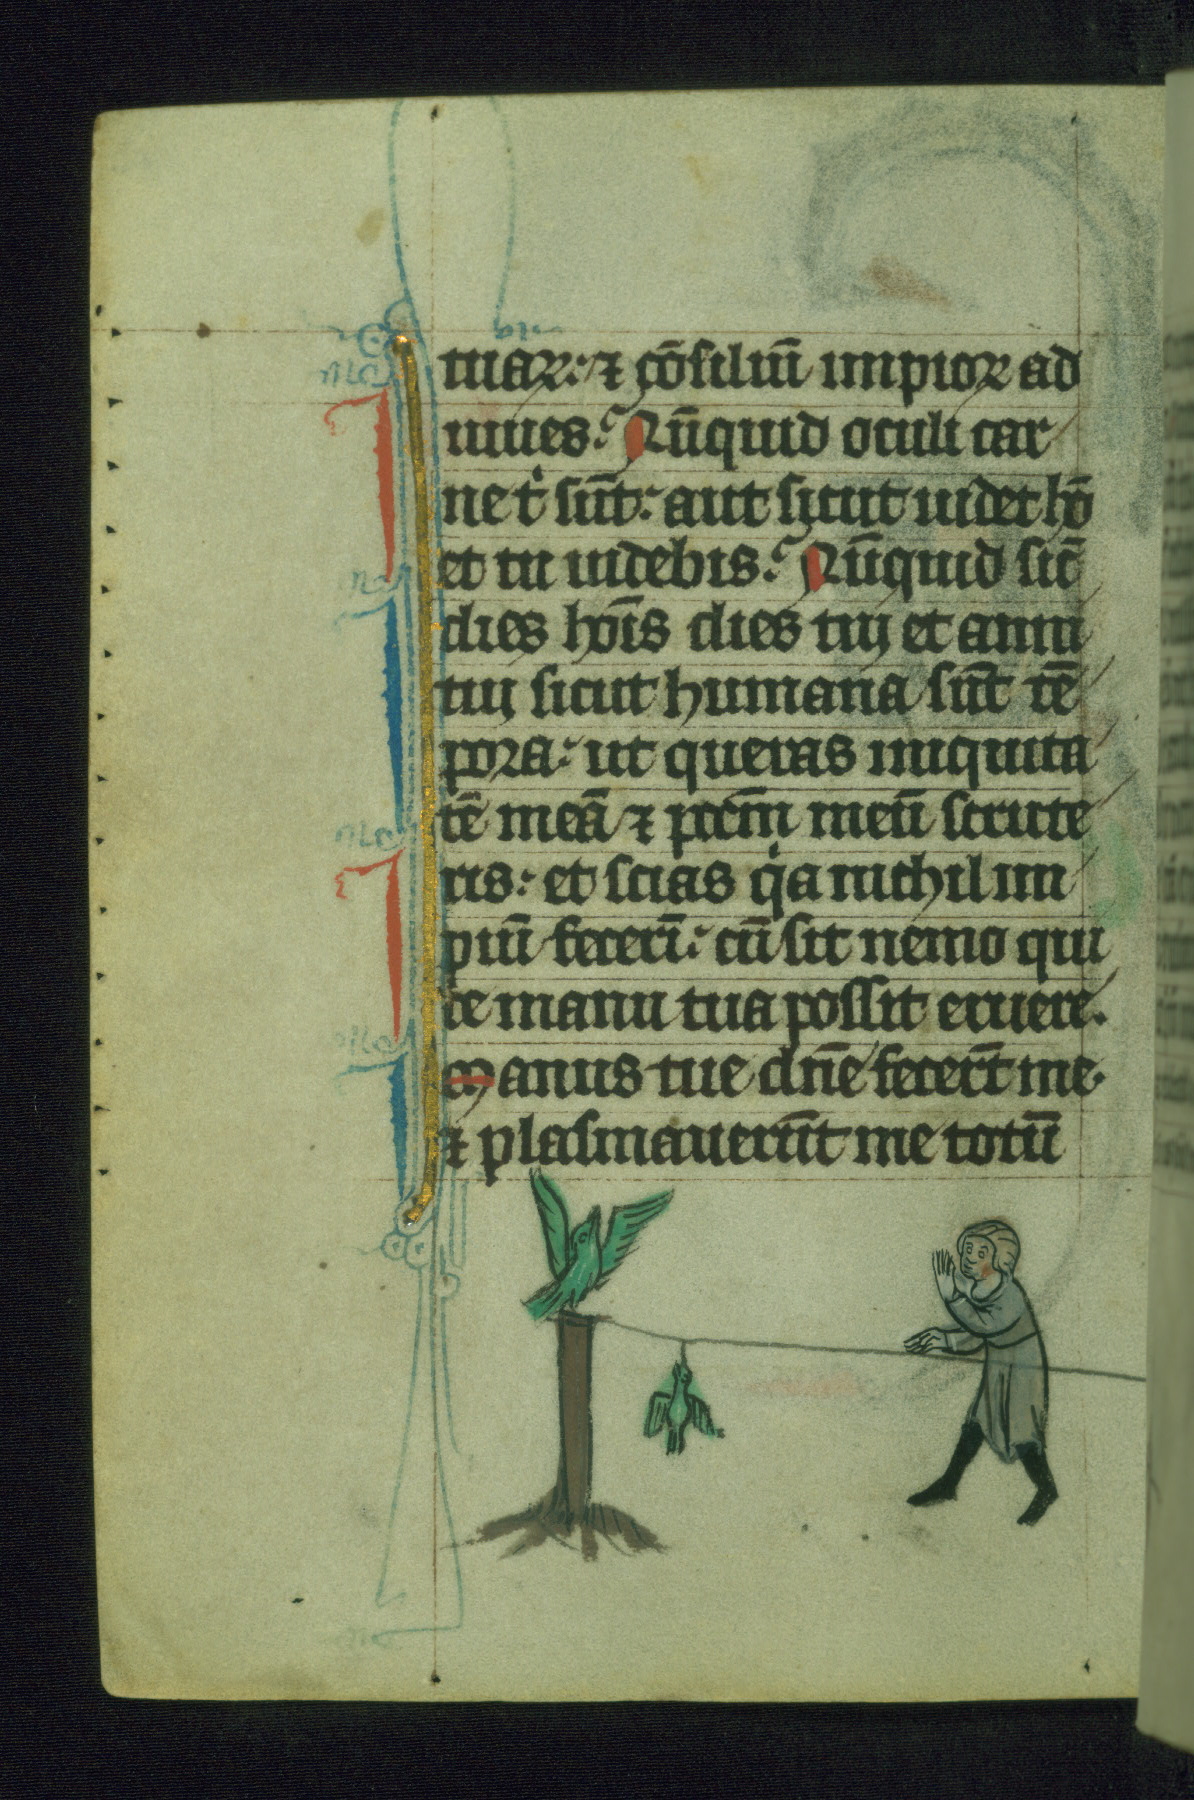 tuaꝝ: ⁊ ꝯ̄siliū impioꝝ ad
iuues: Nūquid oculi car
nei t̾ sūt: aut sicut uidet hō
et tu uidebis: Nūquid sic̄
dies hōīs dies tuj et anni
tuj sicut humana sūt tē
pora: ut queras iniquita
tē meā ⁊ pccm̄ meū scrute
ris: et scias qͥa nichil im
piū fecerī: cū sit nemo qui
de manu tua possit eruere.
Manus tue dn̄e fecerūt me.
⁊ plasmauerūt me totū